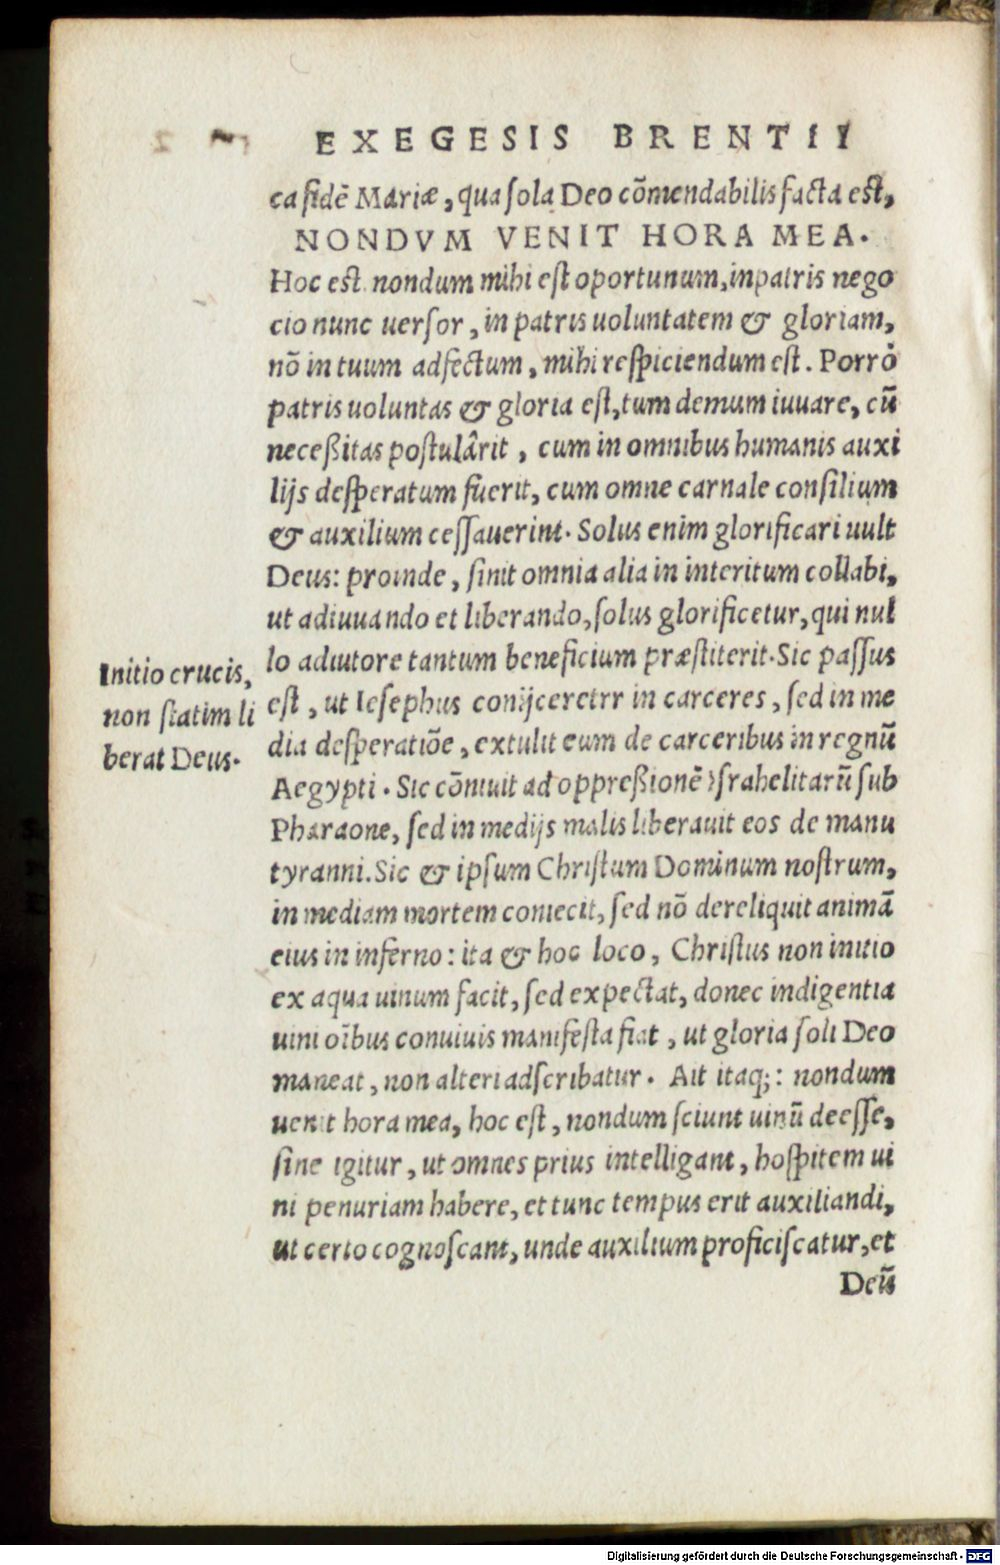 EXEGESIS BRENTII
ca fidē Mariæ, qua sola Deo cōmendabilis facta est,
NONDVM VENIT HORA MEA.
Hoc est nondum mihi est oportunum, in patris nego
cio nunc uersor, in patris uoluntatem & gloriam,
nō in tuum adfectum, mihi respiciendum est. Porrò
patris uoluntas & gloria est, tum demum iuuare, cū
neceßitas postulârit, cum in omnibus humanis auxi
lijs desperatum fuerit, cum omne carnale consilium
& auxilium cessauerint. Solus enim glorificari uult
Deus: proinde, sinit omnia alia in interitum collabi,
ut adiuuando et liberando, solus glorificetur, qui nul
lo adiutore tantum beneficium præstiterit. Sic passus
est, ut Iesephus conijceretrr in carceres, sed in me
dia desperatiōe, extulit eum de carceribus in regnū
Aegypti. Sic cōniuit ad oppreßionē Israhelitarū sub
Pharaone, sed in medijs malis liberauit eos de manu
tyranni. Sic & ipsum Christum Dominum nostrum,
in mediam mortem coniecit, sed nō dereliquit animā
eius in inferno: ita & hoc loco, Christus non initio
ex aqua uinum facit, sed expectat, donec indigentia
uini oībus conuiuis manifesta fiat, ut gloria soli Deo
maneat, non alteri adscribatur. Ait itaq;: nondum
uenit hora mea, hoc est, nondum sciunt uinū deesse,
sine igitur, ut omnes prius intelligant, hospitem ui
ni penuriam habere, et tunc tempus erit auxiliandi,
ut certo cognoscant, unde auxilium proficiscatur, et
Deū
Initio crucis,
non statim li
berat Deus.
Digitalisierung gefördert durch die Deutsche Forschungsgemeinschaft - DFG